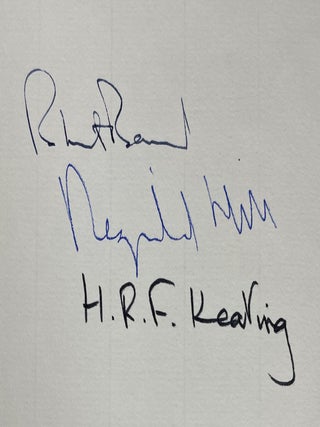 Robert Barnard
Reginald Hill
H.R.F. Keating